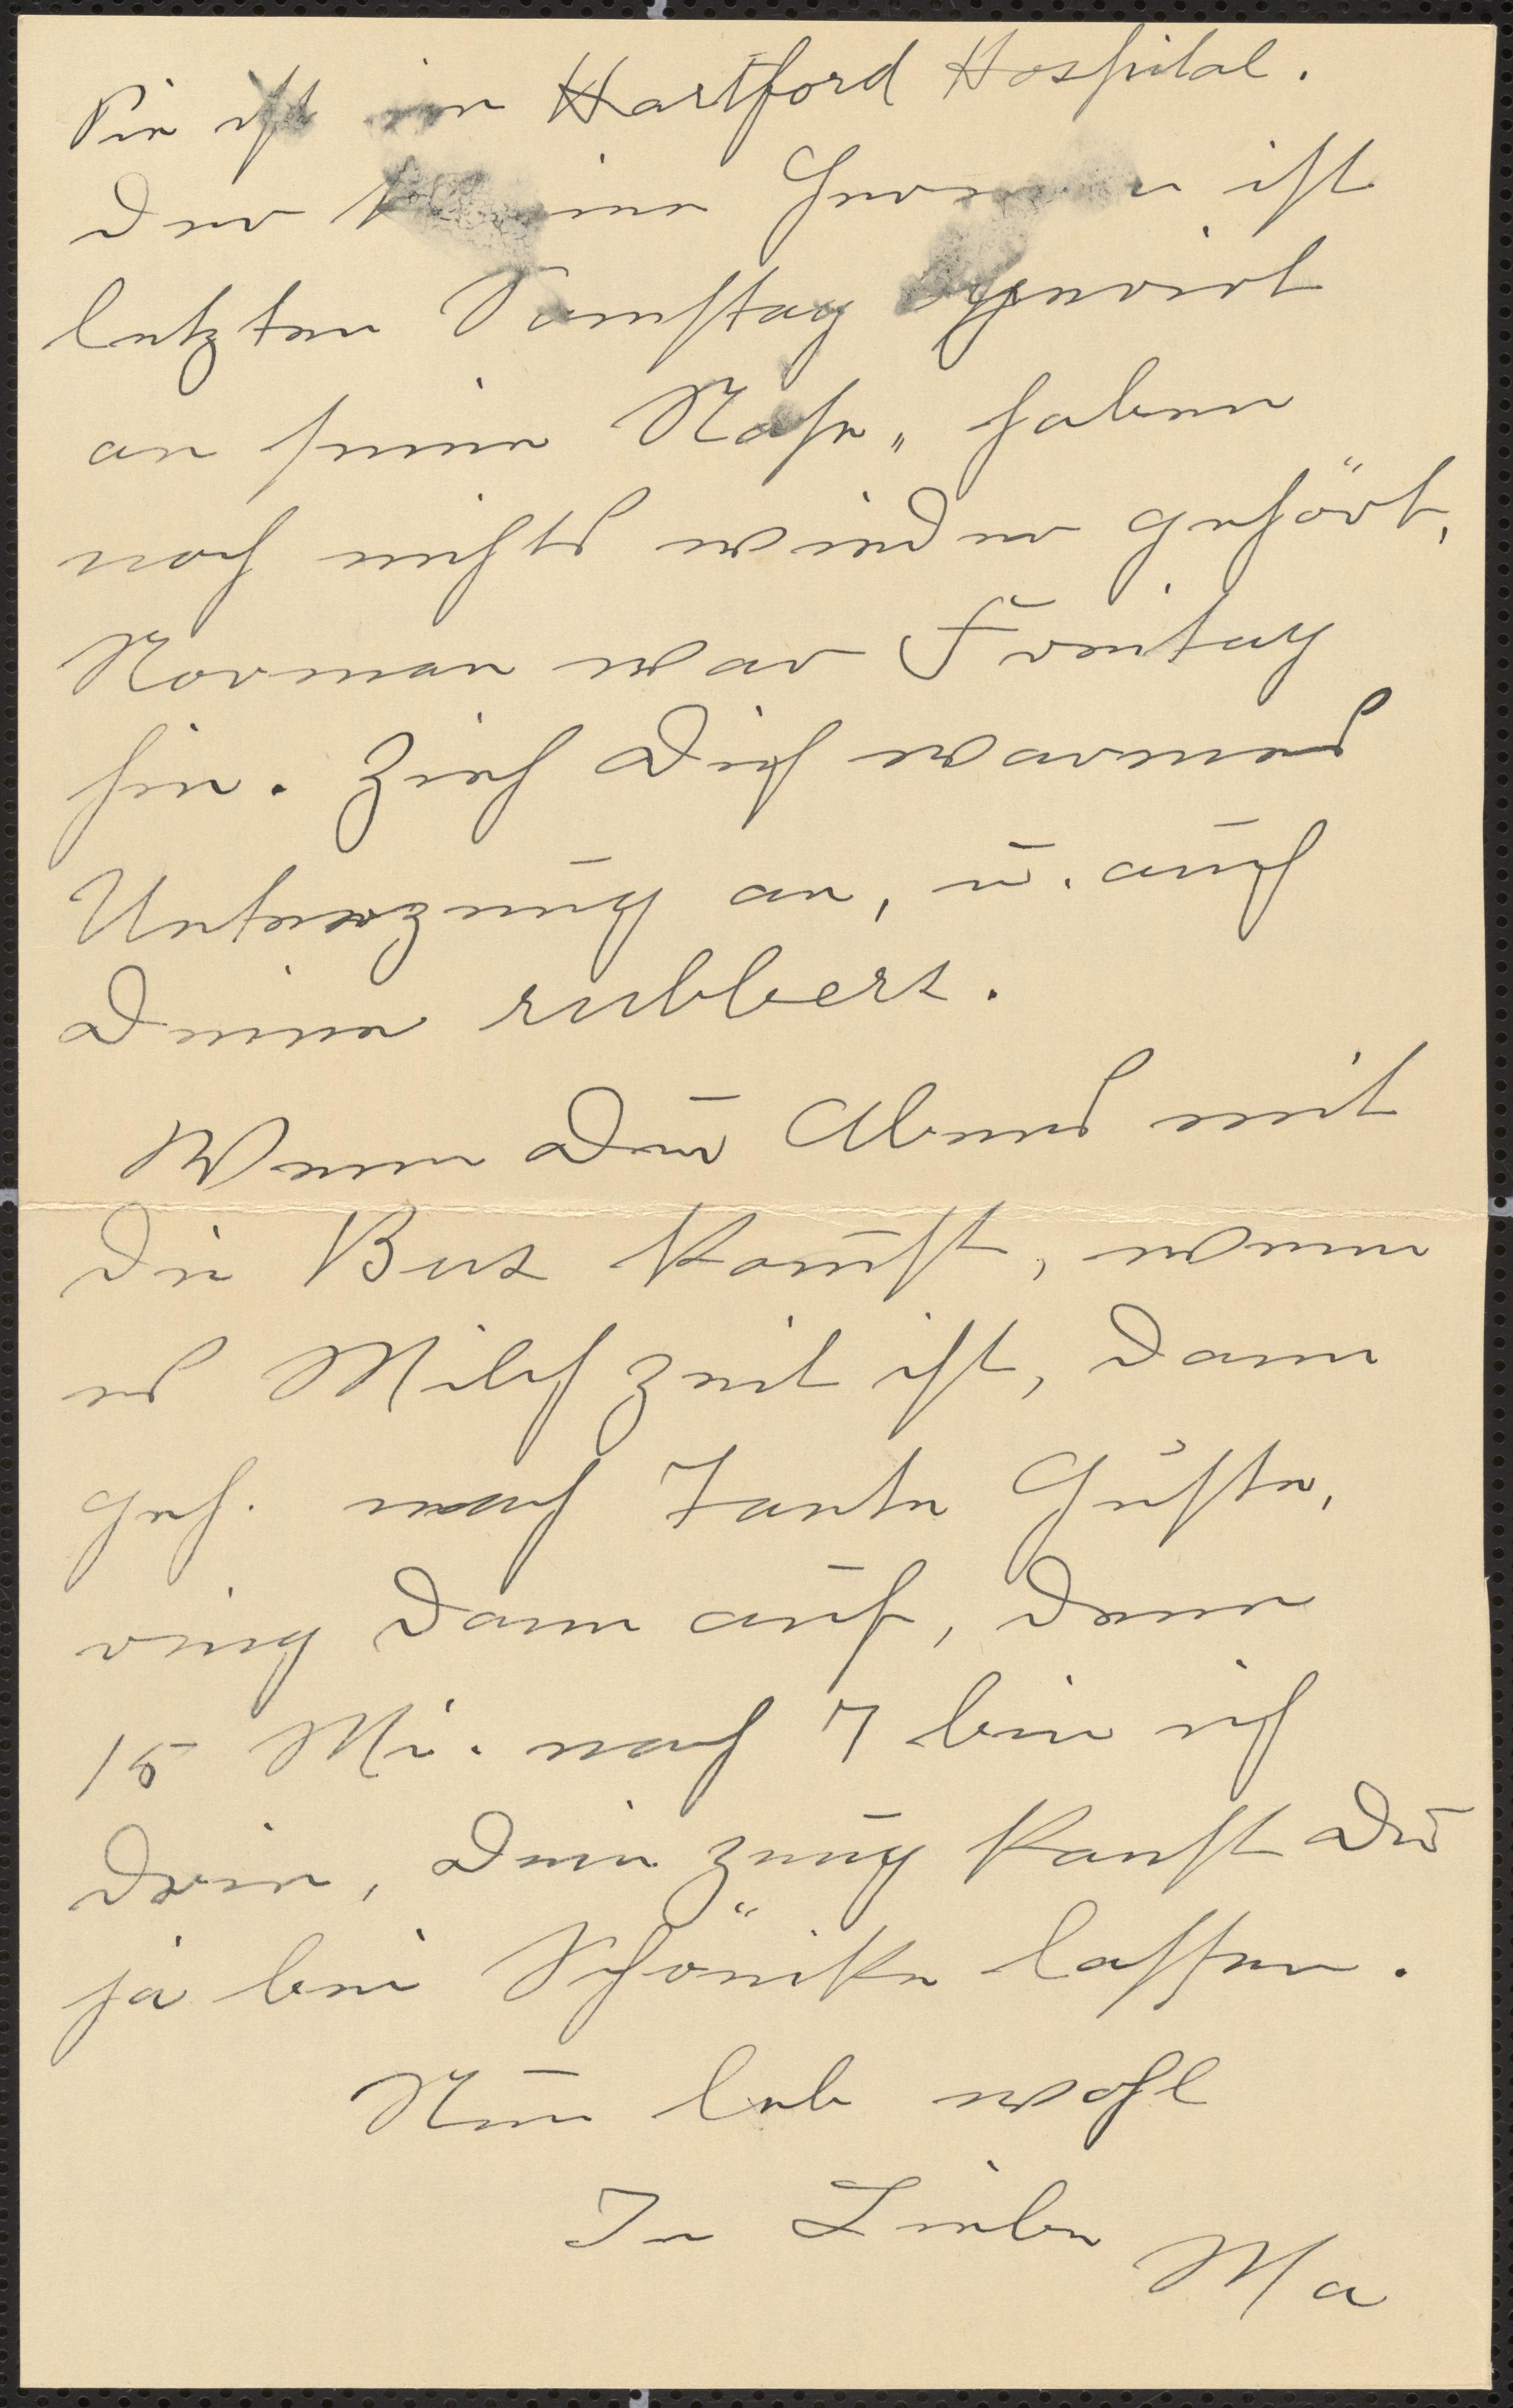 Sie ist in Hartford Hospital.
Der kleine ist
letzten Samstag operirt
an seine Nase, haben
noch nichts wieder gehört,
Norman war Freitag
hin. Zieh Dich warmes
Unterzeug an, u. auch
Deine rubbers.
Wenn Du Abend mit
die Bus komst, wenn
es Milchzeit ist, dann
geh. nach Tante Guste,
ring dann auf, denn
15 Mi. nach 7 bin ich
drin, Dein Zeug kanst Du
ja bei Schönike lassen.
Nun leb wohl
In Liebe
Ma